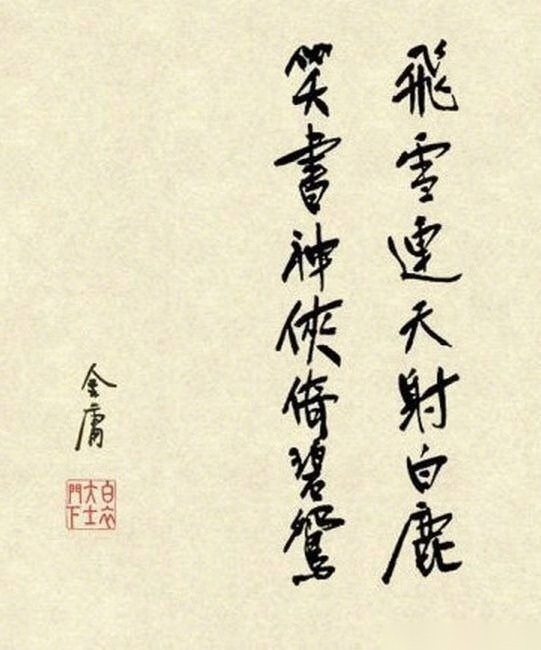 飛雪連天射白鹿
笑書神俠倚碧鴛
金庸
白衣大士門下